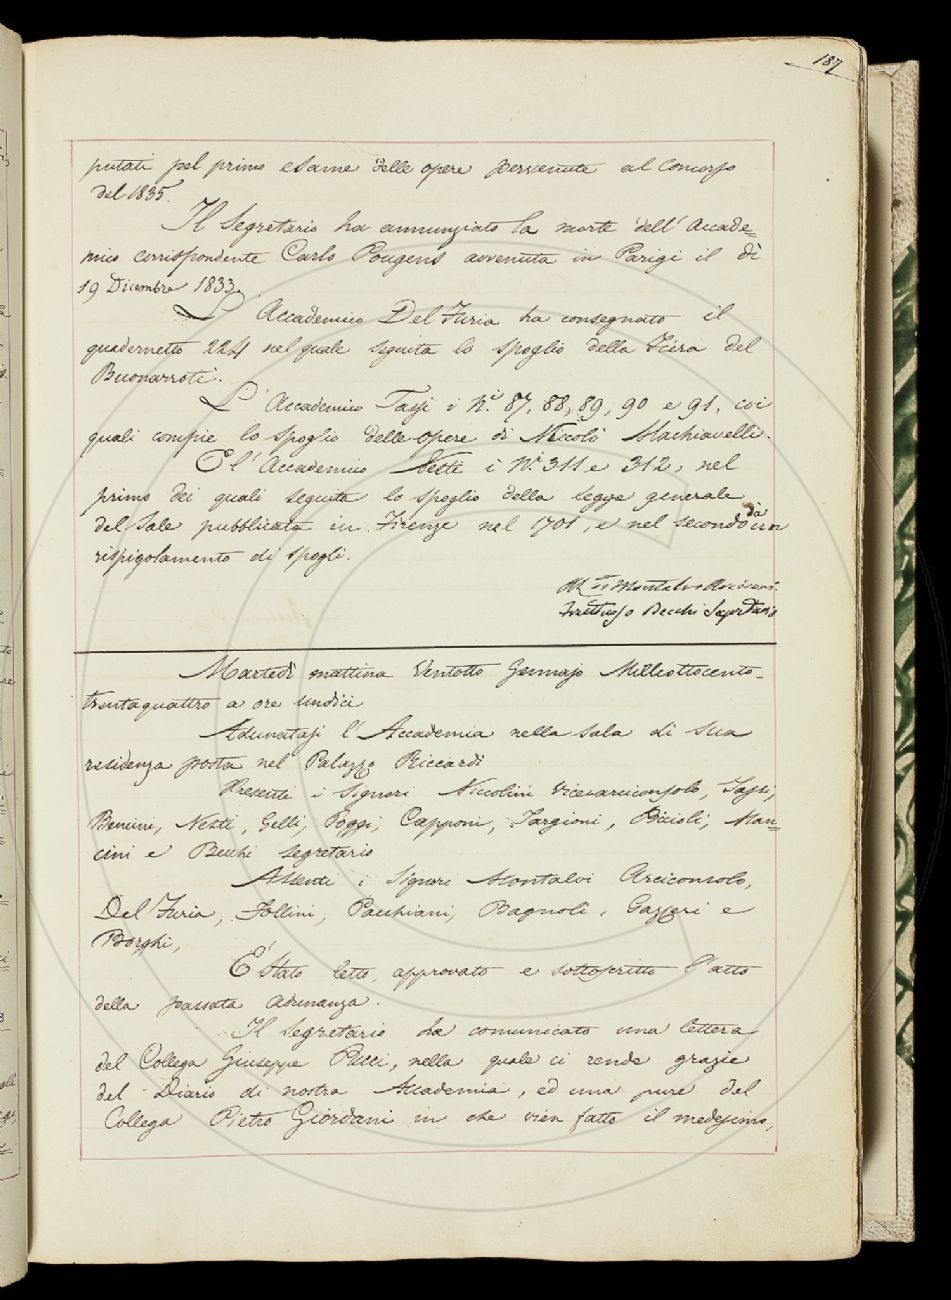 187
putati pel primo esame delle opere pervenute al Concorso
del 1835.
Il Segretario ha annunziato la morte dell' Accade=
mico corrispondente Carlo Pougens avvenuta in Parigi il dì
19 Dicembre 1833.
L' Accademico Del Furia ha consegnato il
quadernetto 224 nel quale seguita lo spoglio della Fiera del
Buonarroti.
L' Accademico Tassi i N.i 87, 88, 89, 90 e 91, coi
quali compie lo spoglio delle opere di Niccolò Machiavelli.
E l' Accademico Nesti i N.i 311 e 312, nel
primo dei quali seguita lo spoglio della legge generale
del Sale pubblicata in Firenze nel 1701, e nel secondo dà un
rispigolamento di spogli.
Montalvo Arciconsolo
Fruttuoso Becchi Segretario
Martedì mattina Ventotto Gennajo Milleottocento-
trentaquattro a ore undici
Adunatasi l' Accademia nella sala di sua
residenza posta nel Palazzo Riccardi
Presenti i Signori Niccolini Vicearciconsolo, Tassi,
Bencini, Nesti, Gelli, Poggi, Capponi, Targioni, Piccioli, Man=
cini e Becchi Segretario
Assenti i Signori Montalvi Arciconsolo,
Del Furia, Follini, Pacchiani, Bagnoli, Gazzeri e
Borghi,
È stato letto, approvato e sottoscritto l' atto
della passata adunanza.
Il Segretario ha comunicato una lettera
del Collega Giuseppe Pucci, nella quale ci rende grazie
del Diario di nostra Accademia, ed una pure del
Collega Pietro Giordani in che vien fatto il medesimo,